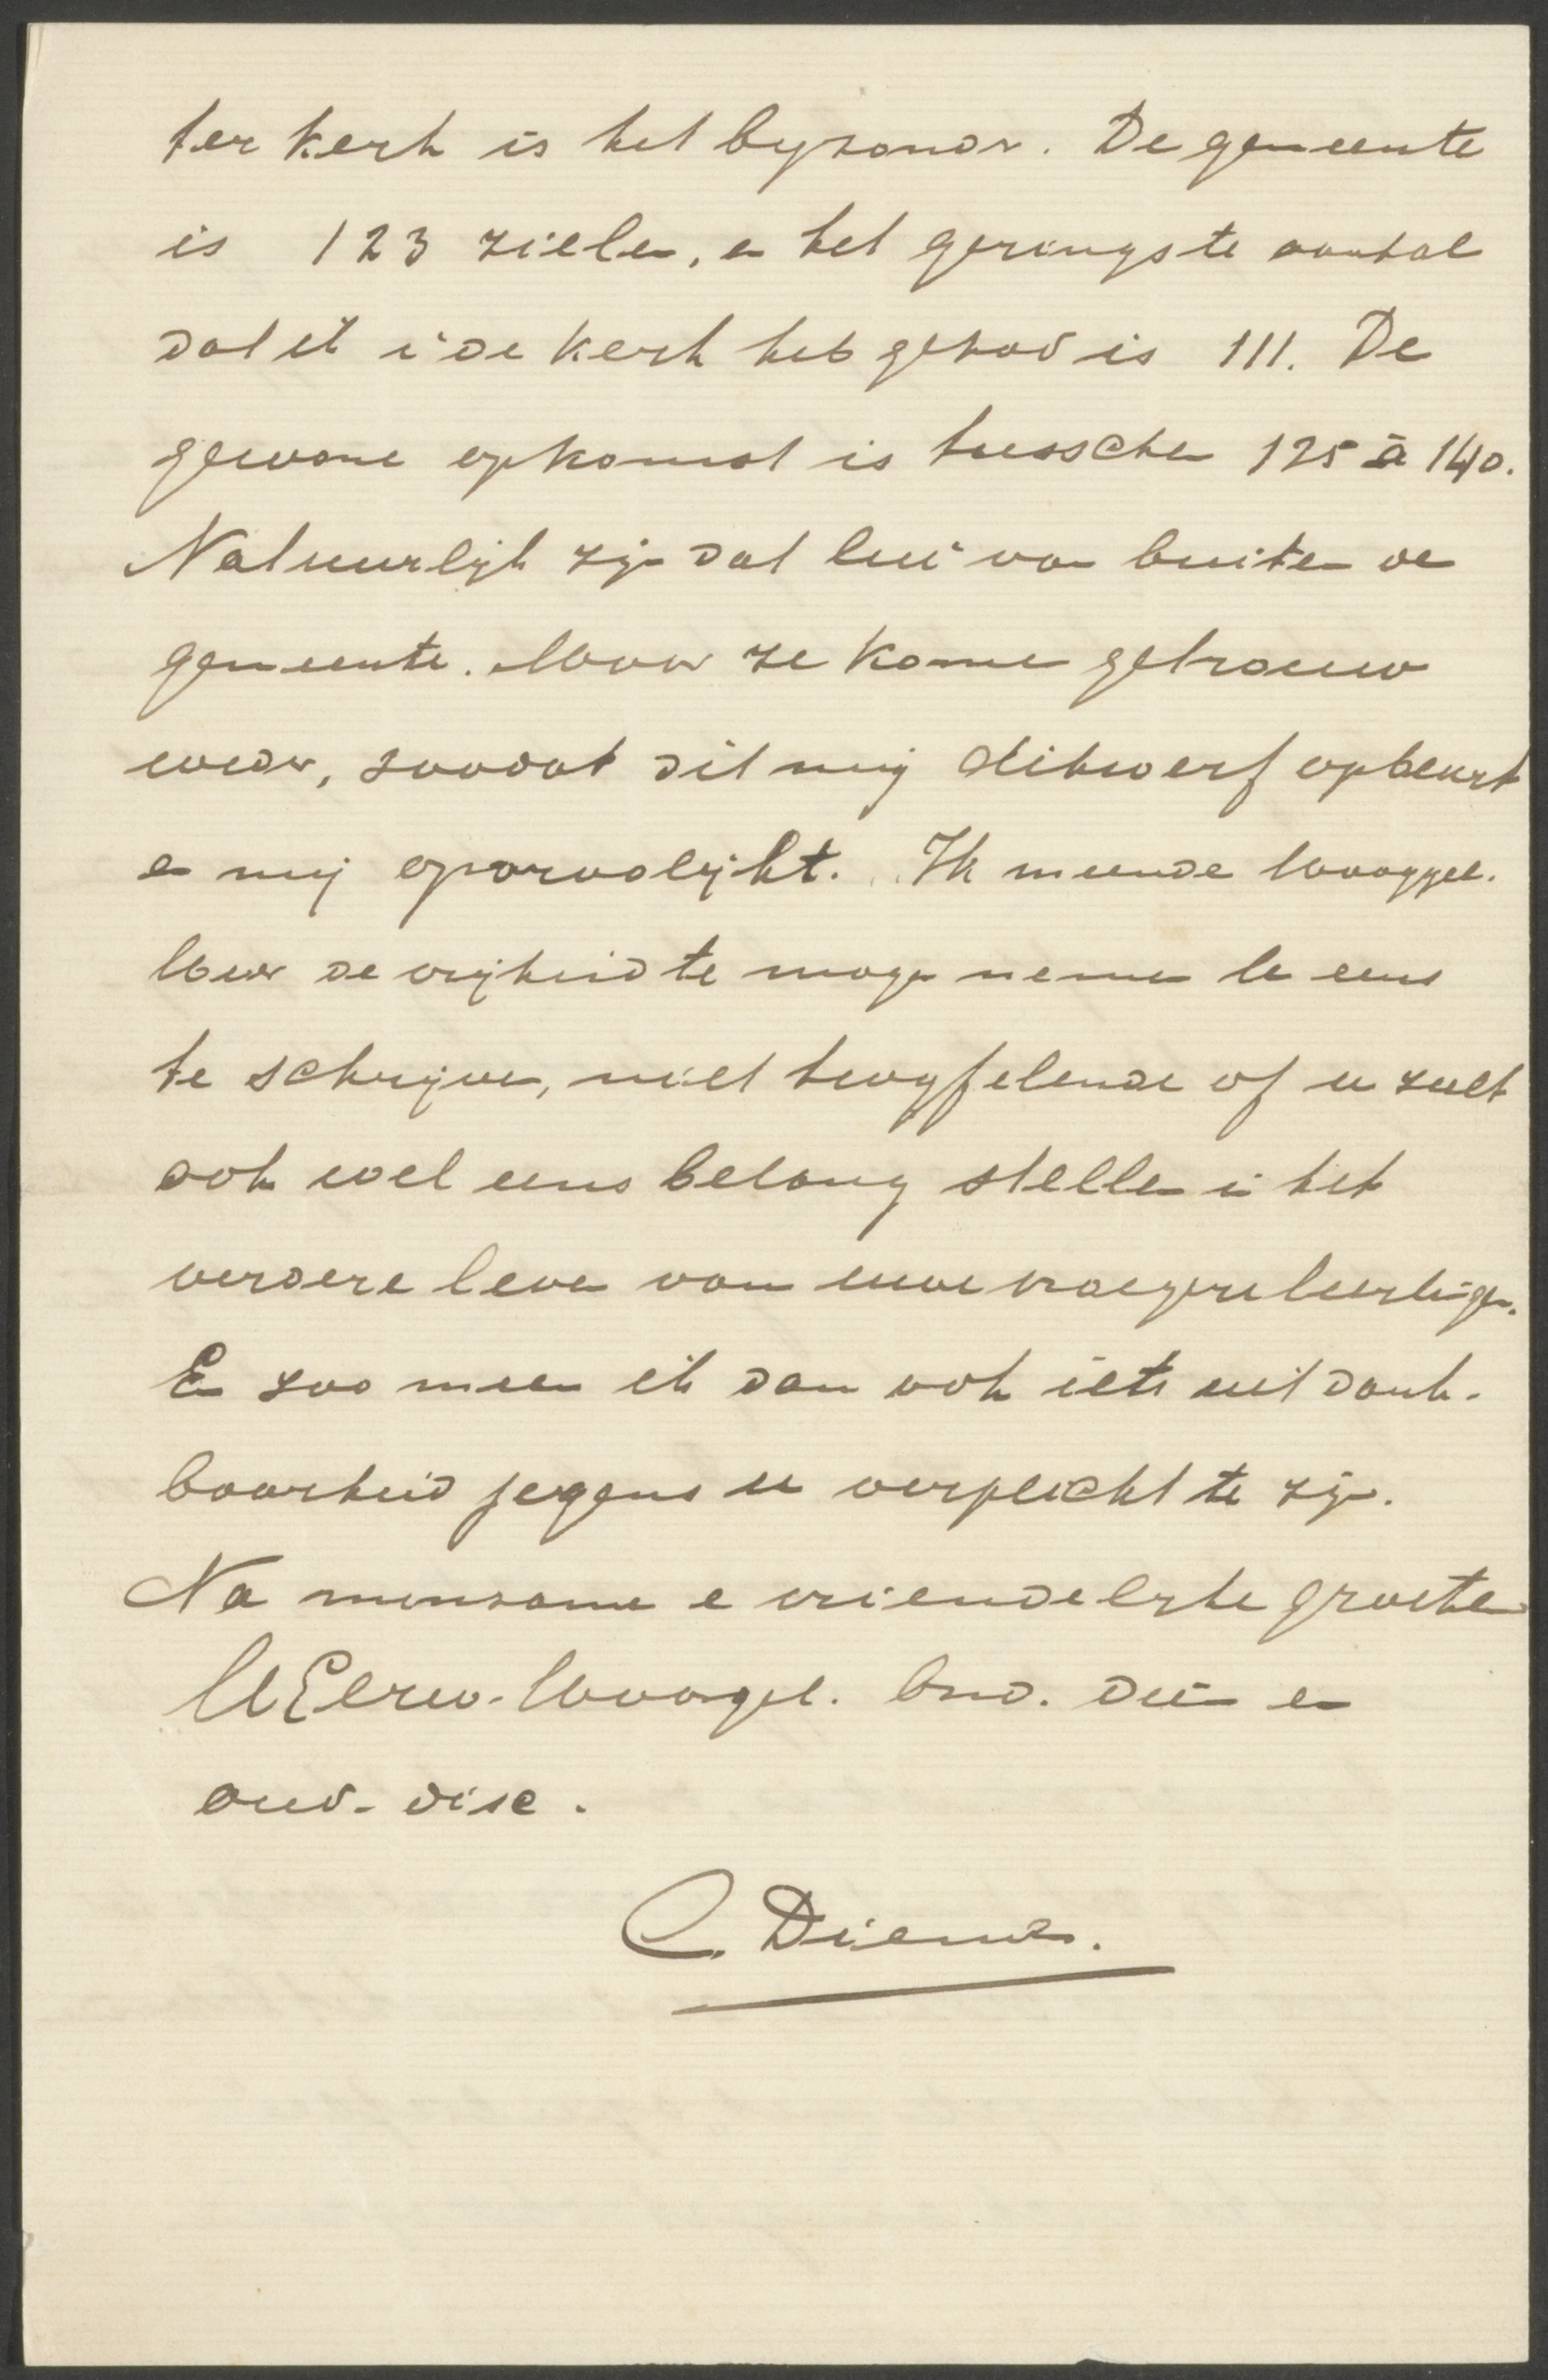 ter kerk is het byzonder. De gemeente
is 123 zielen, en het geringste aantal
dat ik in de kerk heb gehad is 111. De
gewone opkomst is tusschen 125 à 140.
Natuurlijk zijn dat lui van buiten de
gemeente. Maar ze komen getrouw
weder, zoodat dit mij dikwerf opbeurt
en mij opvroolijkt. Ik meende Hooggel.
Heer de vrijheid te mogen nemen U eens
te schrijven, niet twijfelende of u zult
ook wel eens belang stellen in het
verdere leven van uwe vroegere leerlingen.
En zoo meen ik dan ook iets uit dank-
baarheid jegens u verplicht te zijn.
Na minzame en vriendelijke groeten
UEerw. Hooggel. dien en
oud-disc.
C. Diemer.